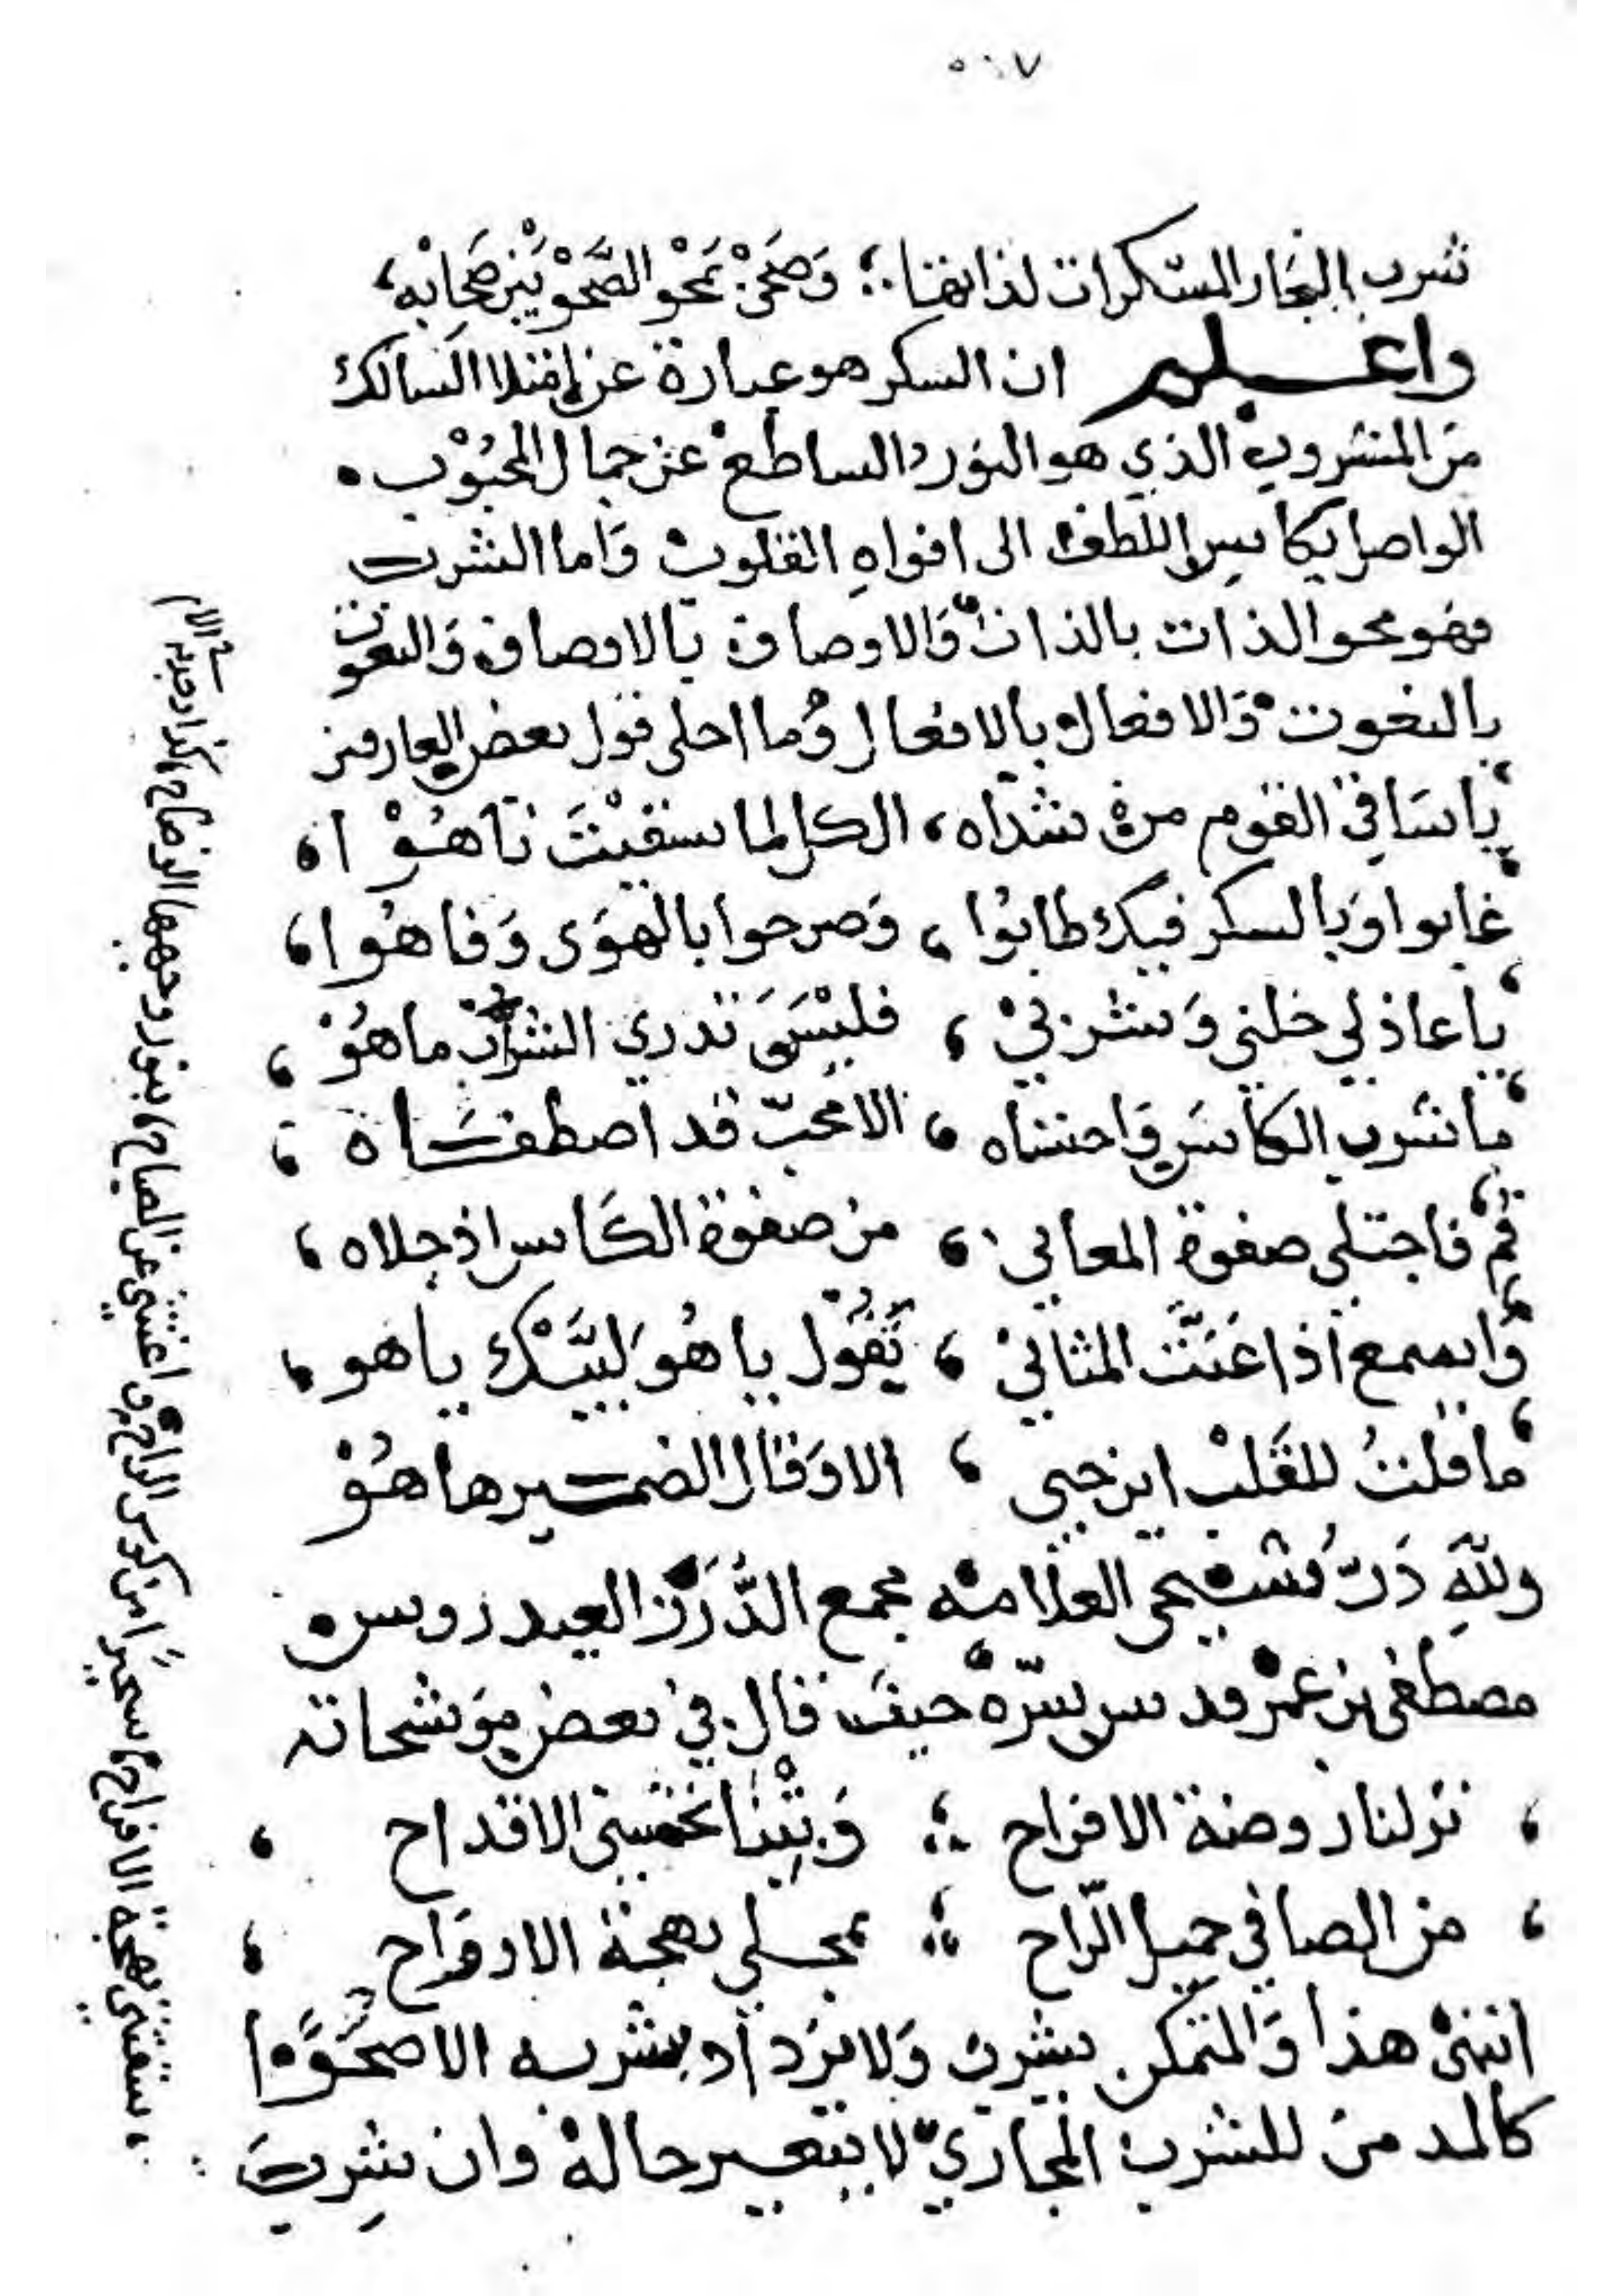 ٥٠٧
شرب البحار المسكرات لذاتها ؛ وَصَحَى نحو الصَّحْو بين صحابه،
واعلم ان السكر هو عبارة عن امتلا السالك
من المشروب الذي هو النور الساطع عن جمال المحبوب.
الواصل بكاس اللطف الى افواهِ القلوب وَاما الشرب
فهو محو الذات بالذات وَالاوصاف بالاوصاف وَالنعوت
بالنعوت وَالافعال بالافعال وَما احلى قول بعض العارفين
يا سَاقي القوم من شذاه، الكل لما سقيْتَ تاهُوْا،
غابوا وَبالسكر فيك طابُوا، وَصرحوا بالهوَى وَفاهُوا،
يا عاذلي خلني وَشربيْ، فليْسَ تدري الشراب ما هُوْ،
ما شرب الكاس وَاحتساه، الا محبّ قد اصطفاه،
قُم فاجتلى صفوة المعاني، من صفوة الكاس اذ جلاه،
وَاسمع اذا غَنَّت المثاني، تَقُول يا هُو لبَيَّكْ يا هو،
ما قلتُ للقَلبْ اين حبي، الا وَقال الضمير ها هُوْ
وللّٰهِ دَرّ شيخي العلامه مجمع الدُّرَر العيدروس
مصطفى بن عمر قدس سِرّهْ حيث قال في بعض موَشحاته
، نزلنا روضة الافراح ؛ وَبِتْنا نحتسي الاقداح ،
، من الصافي حميا الرّاح ؛ بمجلى بهجة الاروَاح ،
انتهى هذا وَالمتمكن يشرب وَلا يزداد بشربه الا صَحْوًا
كالمدمن للشرب المجازيّ لا يتغير حاله وان شرب
، ستقتنى بهجة الافراح، سحيرًا من كوس الراح، واغتنى عن الصباح، بنور وجهها الوضاح،